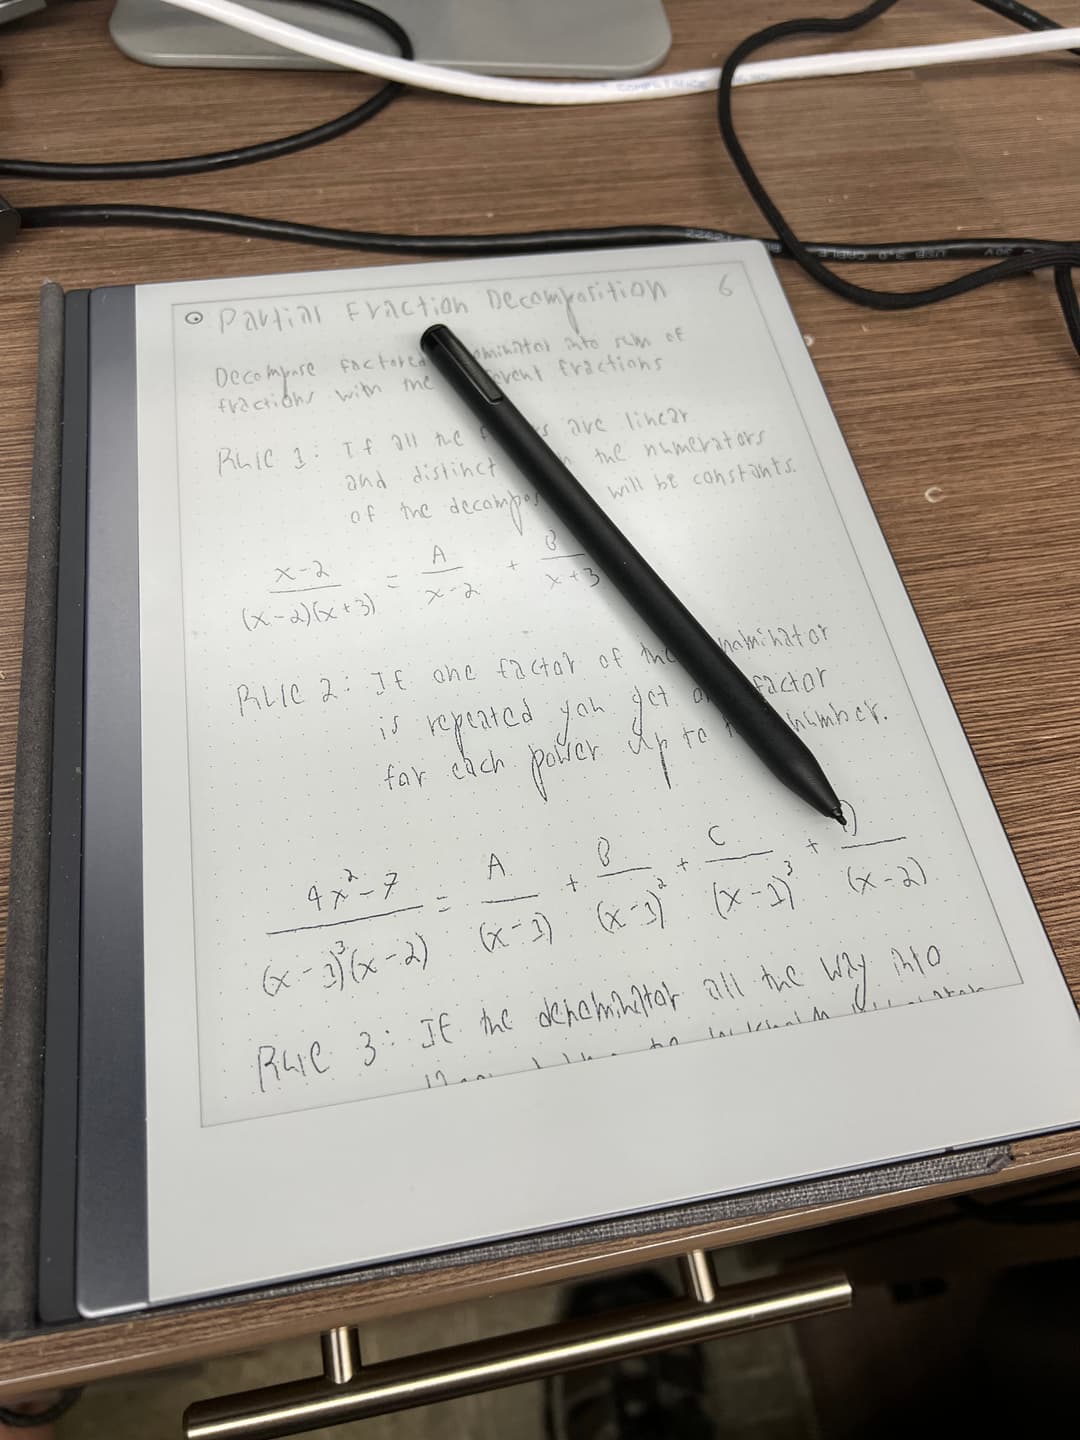 Partial Fraction Decomposition 6
Decompose factored into sum of
fractions with the fractions
Rule 1: If all the are linear
and distinct the numerators
of the will be constants.
x-2 / (x-2)(x+3) = A / x-2 + B / x+3
Rule 2: If one factor of the
is repeated you get factor
for each power up to number.
4x²-7 / (x-1)³(x-2) = A / (x-1) + B / (x-1)² + C / (x-1)³ + D / (x-2)
Rule 3: If the denominator all the way into
COMPLIANCE
USB 3.0 CABLE 30V